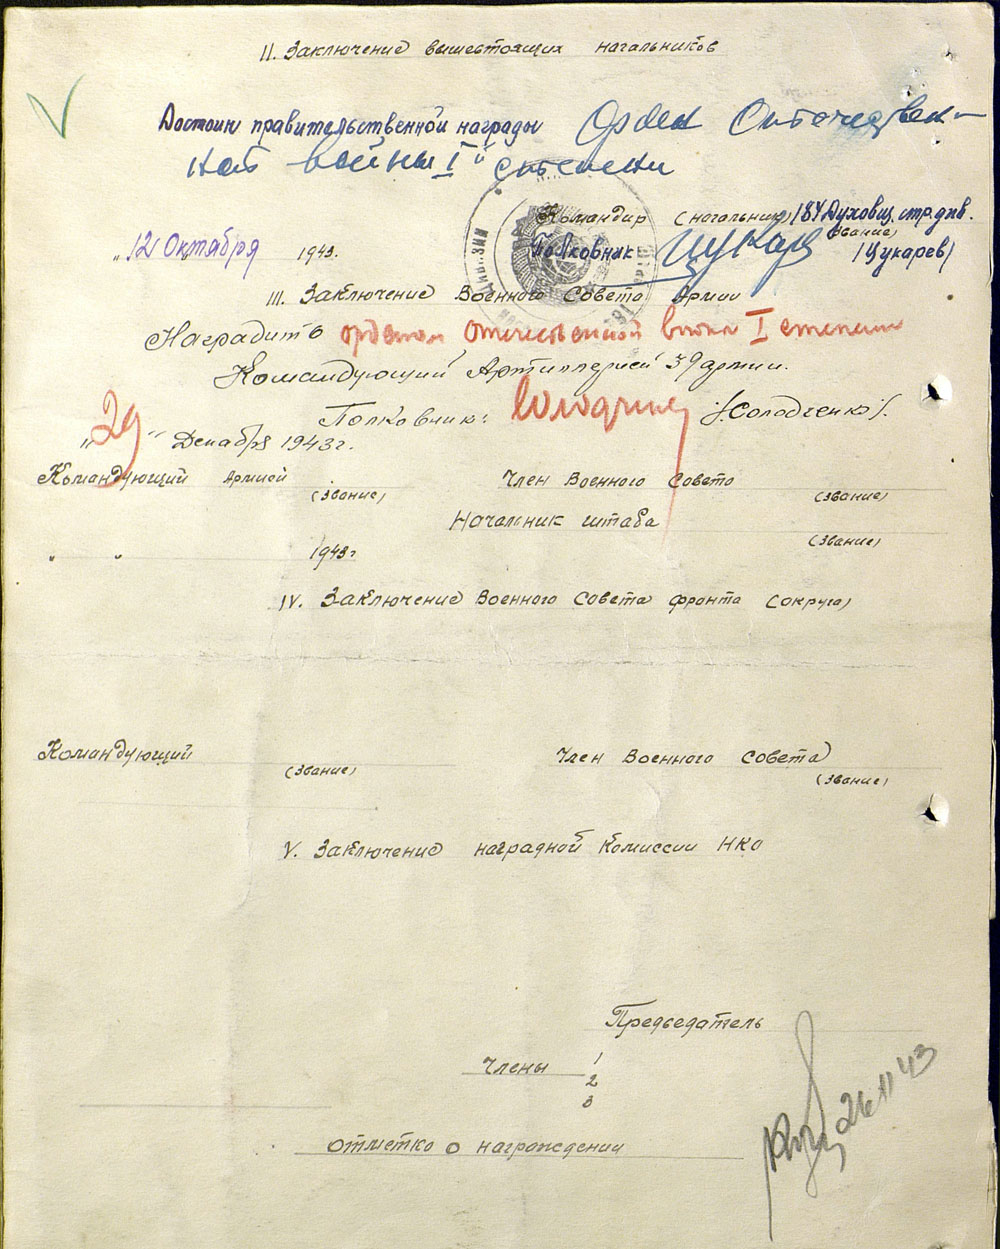 II. Заключение вышестоящих начальников
Достоин правительственной награды Орден Отечествен-
ной войны I й степени
Командир (начальник) 184 Духовщ. стр. див.
(звание)
„12 Октября 1943. Полковник Цукарев (Цукарев)
III. Заключение Военного Совета Армии
Наградить орденом отечественной войны I степени
Командующий Артиллерией 39 армии.
Полковник: Солодченко /Солодченко/.
„29" Декабря 1943г.
Командующий Армией Член Военного Совета
(звание) (звание)
Начальник штаба
(звание)
" " 1943г
IV. Заключение Военного Совета фронта (округа)
Командующий Член Военного Совета
(звание) (звание)
V. Заключение наградной Комиссии НКО
Председатель
Члены 1
2
3
26 11 43
Отметка о награждении